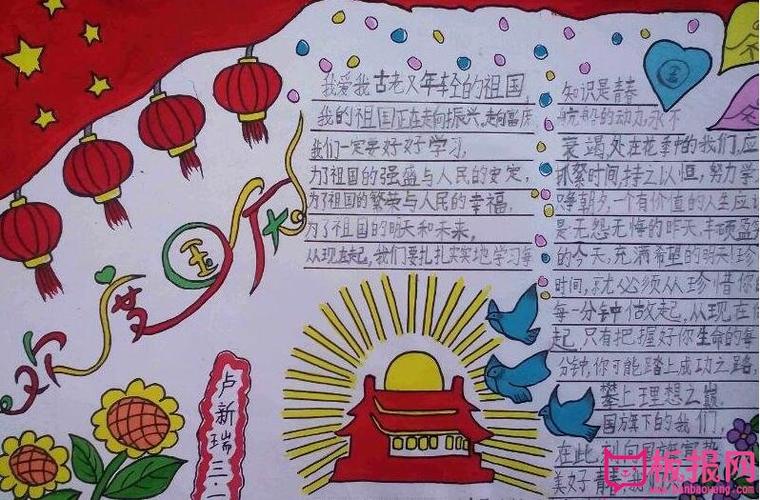 欢度国庆
卢新瑞
三.
我爱我古老又年轻的祖国,
我的祖国正在走向振兴,走向富庶
我们一定要好好学习,
为了祖国的强盛与人民的安定,
为了祖国的繁荣与人民的幸福,
为了祖国的明天和未来,
从现在起,我们要扎扎实实地学习每
知识是青春
的动力,永不
衰竭,处在花季中的我们,应
抓紧时间,持之以恒,努力学
朝夕,一个有价值的人生应
是无怨无悔的昨天,丰硕盈
的今天,充满希望的明天!珍
时间,就必须从珍惜你
每一分钟做起,从现在
起,只有把握好你生命的每
分钟,你可能踏上成功之路,
攀上理想之巅.
国旗下的我们,
在此,到向国旗
美好青春
板报网
www.banbaowang.com